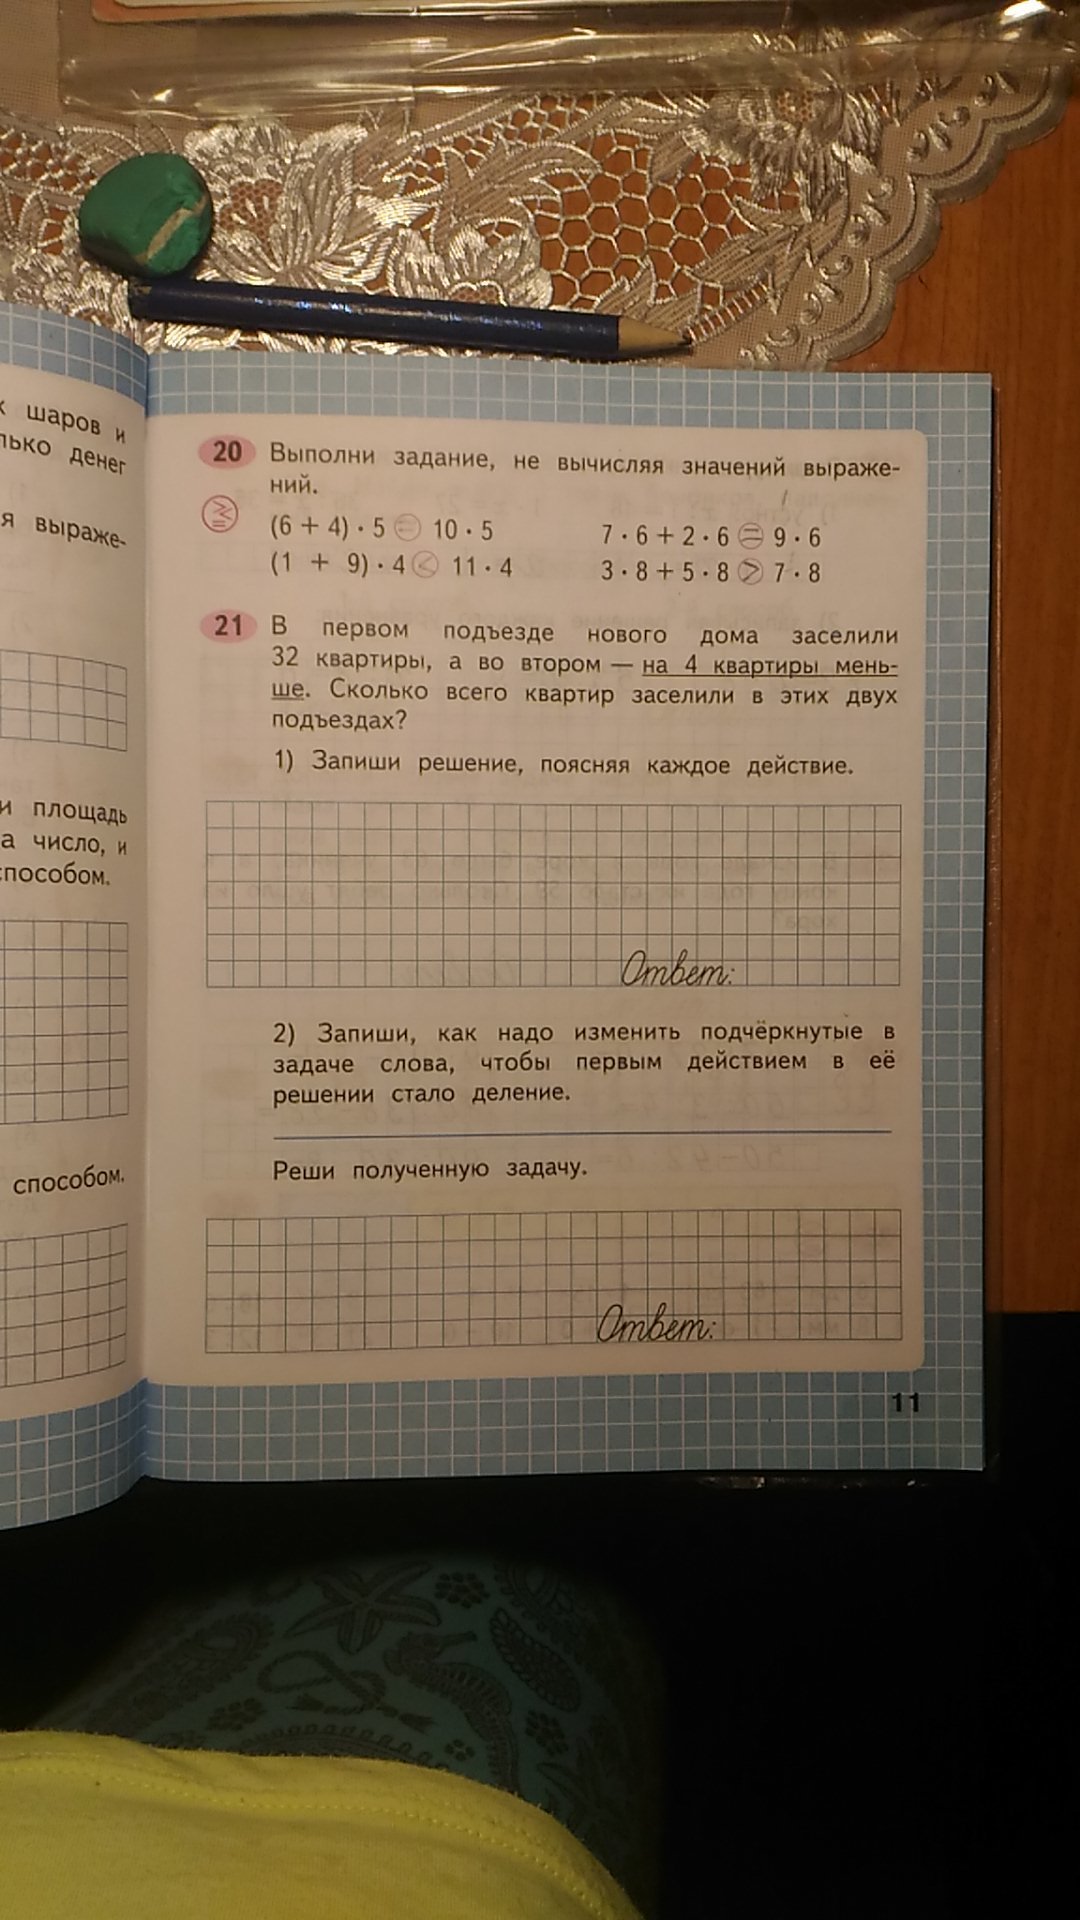 х шаров и
лько денег
я выраже-
и площадь
а число, и
способом.
способом.
20 Выполни задание, не вычисляя значений выраже-
ний.
(6 + 4) · 5 = 10 · 5 7 · 6 + 2 · 6 = 9 · 6
(1 + 9) · 4 < 11 · 4 3 · 8 + 5 · 8 > 7 · 8
21 В первом подъезде нового дома заселили
32 квартиры, а во втором — на 4 квартиры мень-
ше. Сколько всего квартир заселили в этих двух
подъездах?
1) Запиши решение, поясняя каждое действие.
Ответ:
2) Запиши, как надо изменить подчёркнутые в
задаче слова, чтобы первым действием в её
решении стало деление.
Реши полученную задачу.
Ответ:
11